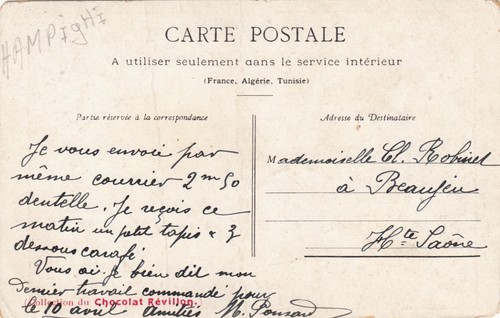 HAMPIGHI
CARTE POSTALE
A utiliser seulement dans le service intérieur
(France, Algérie, Tunisie)
Partie réservée à la correspondance
Adresse du Destinataire
Je vous envoie par
même courrier 2m50
dentelle. Je reçois ce
matin un petit tapis & 3
dessous carafe
Vous ai-je bien dit mon
dernier travail commandé pour
le 10 avril Amitiés M. Ponsard
(Collection du Chocolat Révillon.)
Mademoiselle Cl. Robinet
à Beaujeu
Hte Saône